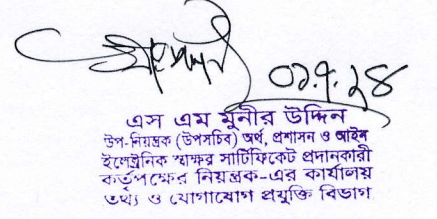 ০১.৭.২৪
এস এম মুনীর উদ্দিন
উপ-নিয়ন্ত্রক (উপসচিব) অর্থ, প্রশাসন ও আইন
ইলেক্ট্রনিক স্বাক্ষর সার্টিফিকেট প্রদানকারী
কর্তৃপক্ষের নিয়ন্ত্রক-এর কার্যালয়
তথ্য ও যোগাযোগ প্রযুক্তি বিভাগ